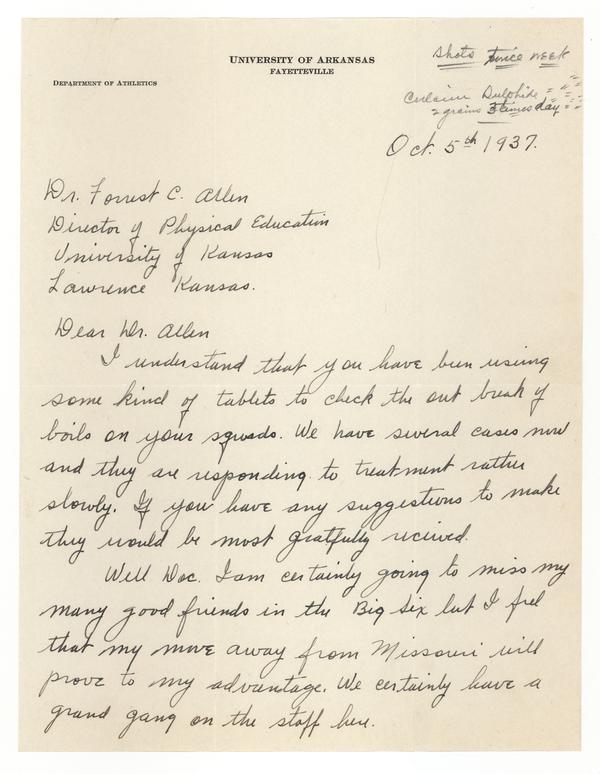 UNIVERSITY OF ARKANSAS
FAYETTEVILLE
DEPARTMENT OF ATHLETICS
Shots twice week
Sulphide
2 grains 3 times day
Oct. 5th 1937.
Dr. Forrest C. Allen
Director of Physical Education
University of Kansas
Lawrence Kansas.
Dear Dr. Allen
I understand that you have been useing
some kind of tablets to check the out break of
boils on your squads. We have several cases now
and they are responding to treatment rather
slowly. If you have any suggestions to make
they would be most gratfully recieved.
Well Doc. I am certainly going to miss my
many good friends in the Big Six but I feel
that my move away from Missouri will
prove to my advantage. We certainly have a
grand gang on the staff here.